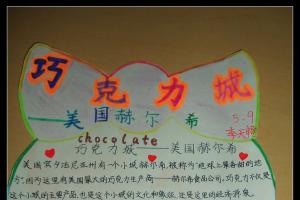 巧克力城
——美国赫尔希
5.9
chocolate
巧克力城——美国赫尔希
美国宾夕法尼亚州有一个小城赫尔希,被称为“地球上最香甜的地
方”,因为这里有美国最大的巧克力生产商——赫尔希食品公司,巧克力不仅是
这个小城的主要产品,也是这个小城的文化和象征,还是这里的经济源泉